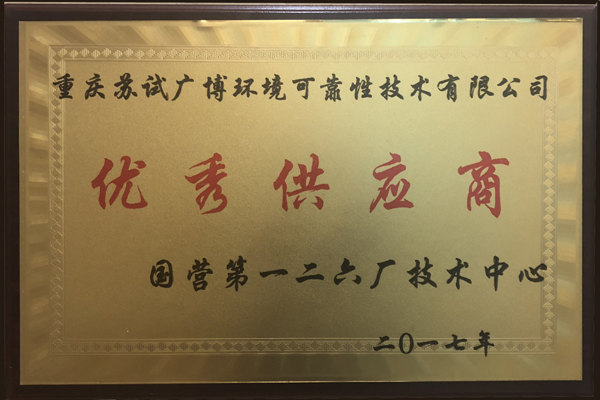 重庆苏试广博环境可靠性技术有限公司
优秀供应商
国营第一二六厂技术中心
二0一七年